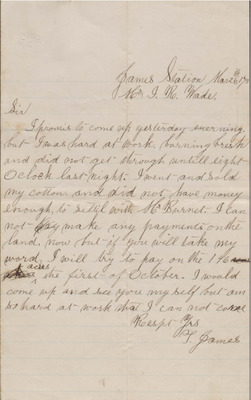 James Station March 6th
Mr I. R. Wade.
Sir
I promis to come up yesterday evening
but I was hard at work, burning brush
and did not get through untill eight
Oclock last night, I went and sold
my cotton, and did not have money
enough, to settle with Mc Burnet. I can
not make any payments on the
land, now but if you will take my
word, I will try to pay on the 196
acres the first of October. I would
come up and see you my self but am
so hard at work that I can not come
Respt Yrs
James